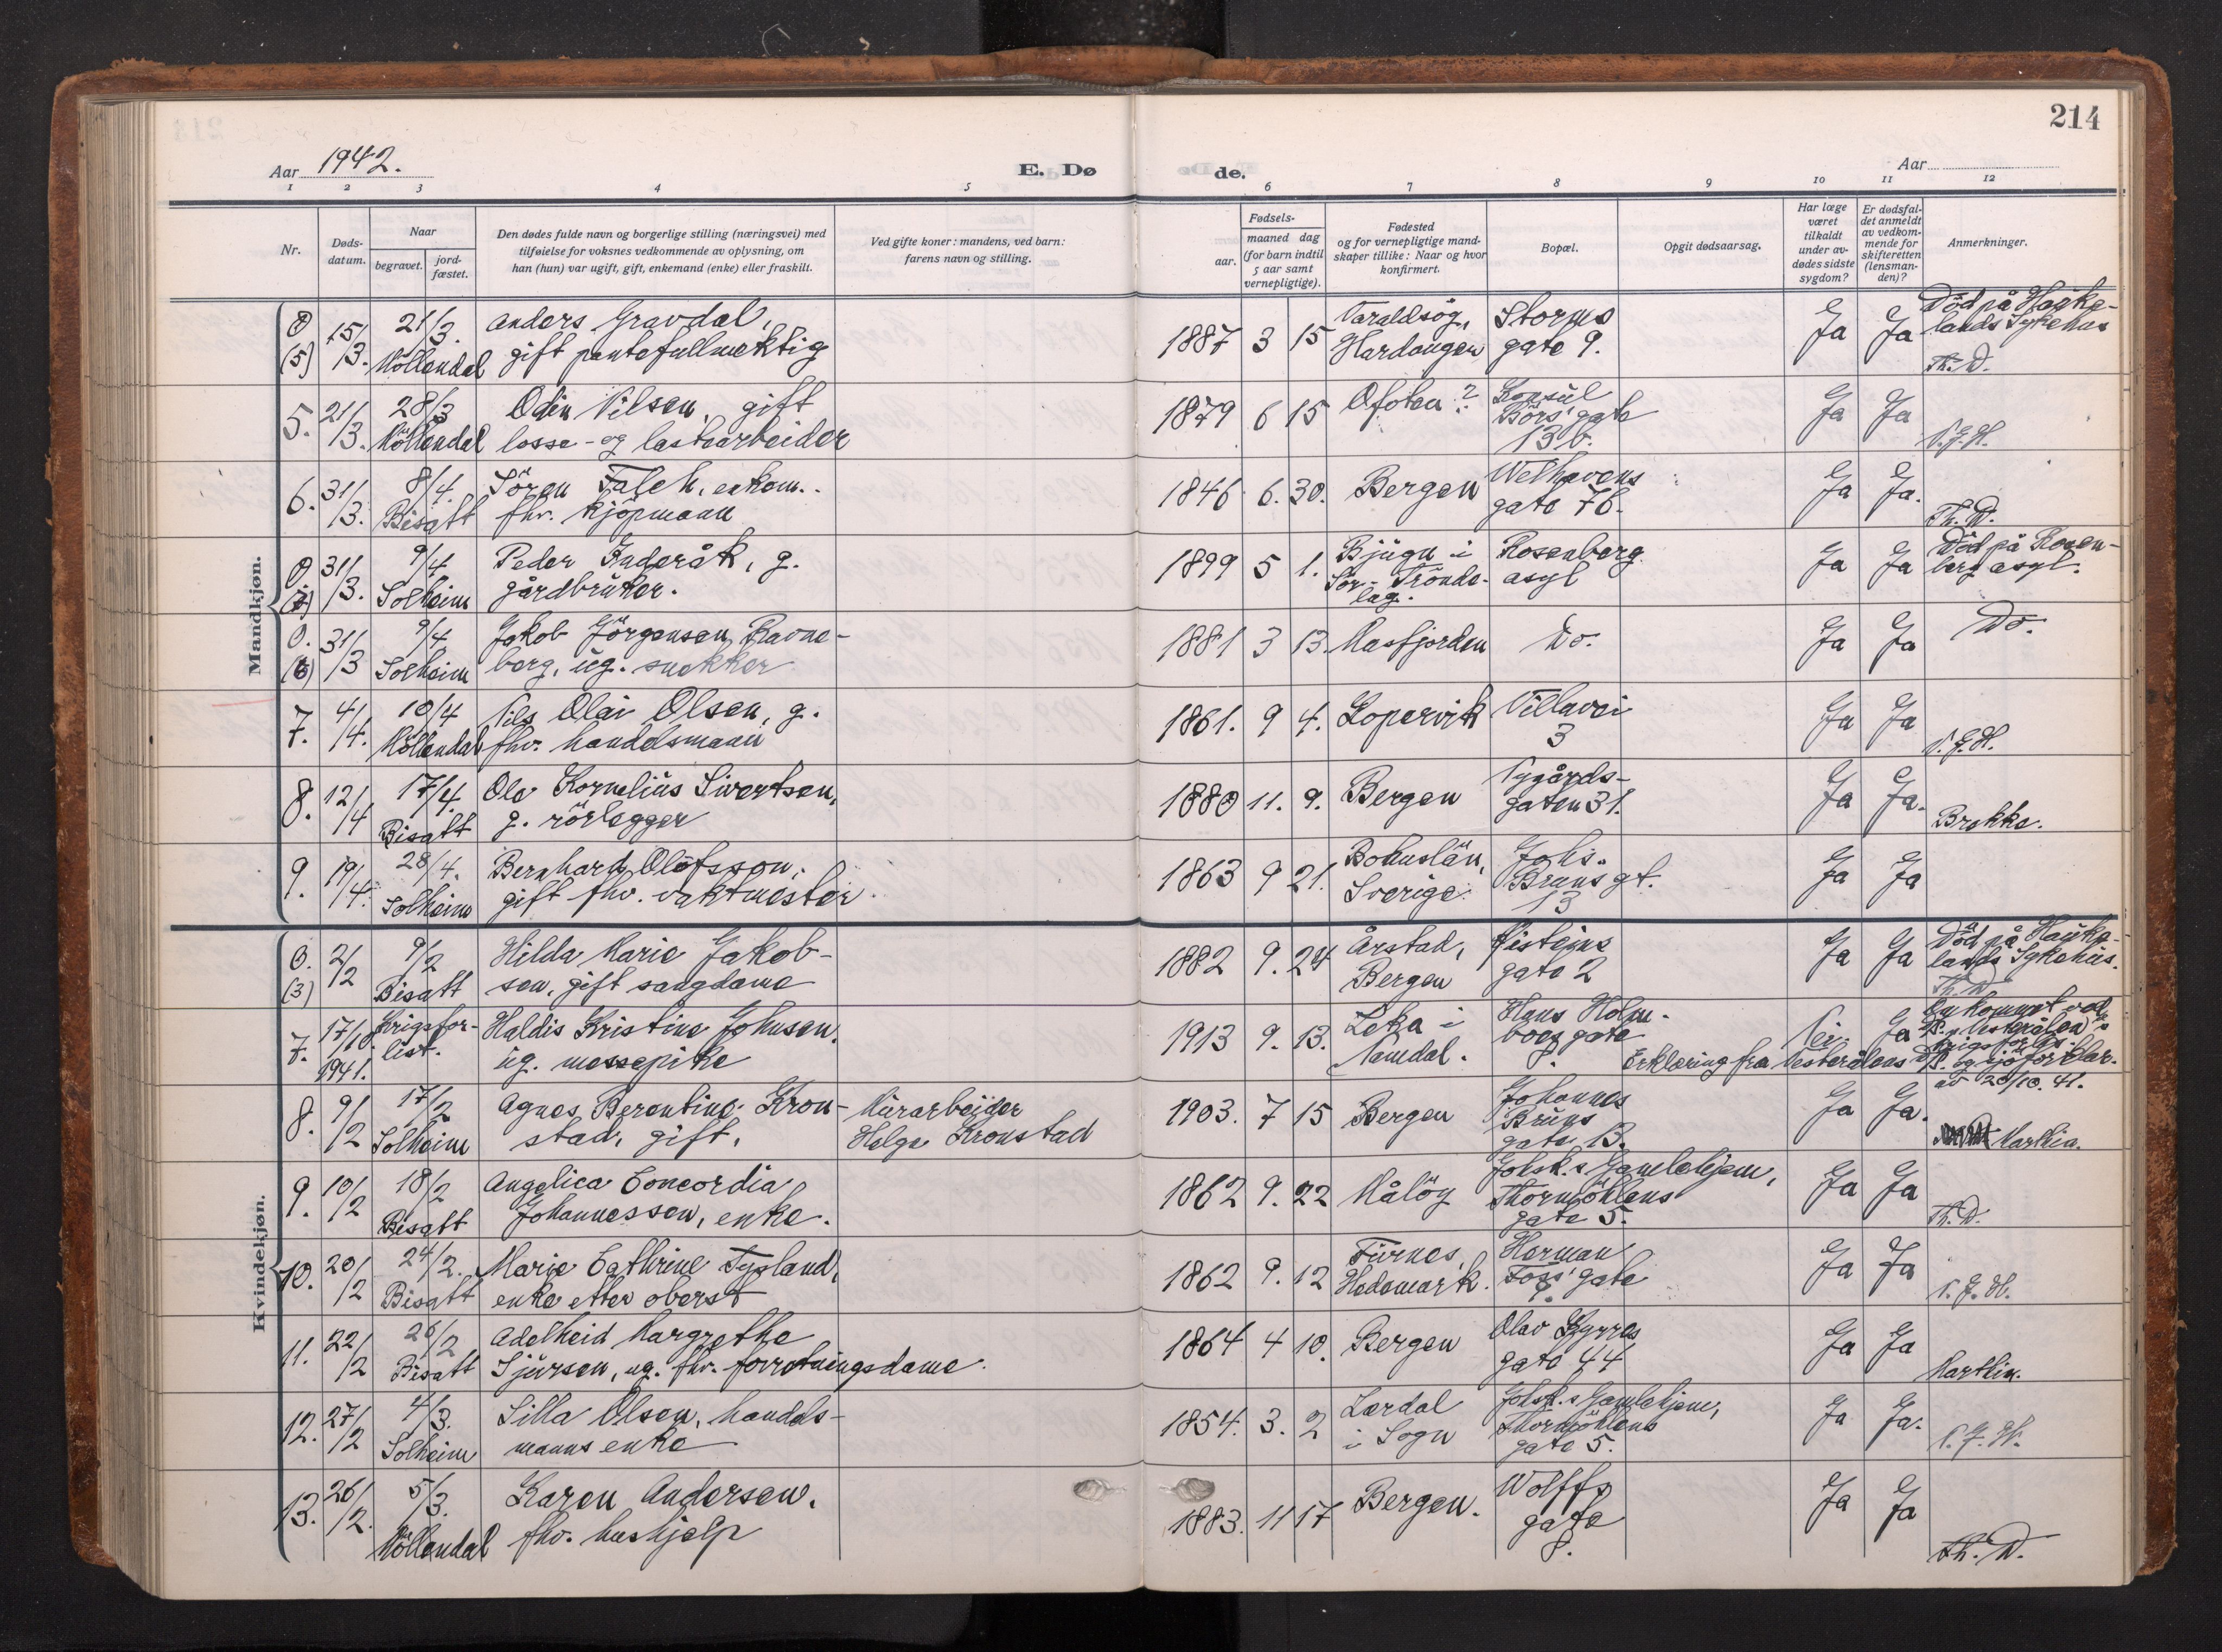 214
Aar 1942.
E. Dø
de.
Aar
1 2 3 4 5 6 7 8 9 10 11 12
Nr.
Døds-
datum.
Naar
begravet.
jord-
fæstet.
Den dødes fulde navn og borgerlige stilling (næringsvei) med
tilføielse for voksnes vedkommende av oplysning, om
han (hun) var ugift, gift, enkemand (enke) eller fraskilt.
Ved gifte koner: mandens, ved barn:
farens navn og stilling.
Fødsels-
aar.
maaned dag
(for barn indtil
5 aar samt
vernepligtige).
Fødested
og for vernepligtige mand-
skaper tillike: Naar og hvor
konfirmert.
Bopæl.
Opgit dødsaarsag.
Har læge
været
tilkaldt
under av-
dødes sidste
sygdom?
Er dødsfal-
det anmeldt
av vedkom-
mende for
skifteretten
(lensman-
den)?
Anmerkninger.
Mandkjøn.
0 15/ 21/3. Anders Gravdal, 1887 3 15 Varaldsöy, Storms Ja Ja Död på Hauke-
(5) /3. Möllendal gift pantefullmektig Hardanger gate 9. lands Sykehus
Th. W.
5. 21/ 28/3 Odin Nilsen, gift 1879 6 15 Ofoten? Konsul Ja Ja
/3. Möllendal losse- og lastearbeider Börs' gate
13b. N.J.H.
6. 31/ 8/4. Sören Falch, enkem. 1846 6. 30. Bergen Welhavens Ja Ja.
/3. Bisatt fhv. kjöpmann gate 76. Th. W.
0. 31/ 9/4 Peder Inderåk, g. 1899 5 1. Bjugn i Rosenberg Ja Ja Död på Rosen-
/3. Solheim gårdbruker. Sör-Trönde- asyl berg asyl.
lag.
0. 31/ 9/4 Jakob Jörgensen Ravne- 1881 3 13. Masfjorden Do. Ja Ja Do.
(6) /3 Solheim berg, ug. snekker
7. 4/ 10/4 Nils Olai Olsen, g. 1861. 9 4. Kopervik Villavei Ja Ja
/4. Möllendal fhv. handelsmann 3 N.J.H.
8. 12/ 17/4. Ole Kornelius Sivertsen, 1880 11. 9. Bergen Nygårds- Ja Ja.
/4 Bisatt g. rörlegger gaten 31. Brekke.
9. 19/ 28/4. Bernhard Olofsson, 1863 9 21. Bohuslän, Johs. Ja Ja
/4. Solheim gift fhv. vaktmester Sverige. Bruns gt.
13
Kvindekjøn.
0. 2/ 9/2 Hilda Marie Jakob- 1882 9. 24 Årstad, Nisteins Ja Ja Död på Hauke-
(3) /2 Bisatt sen, gift sangdame Bergen gate 2 lands Sykehus.
Th. W
7. 17/10. Krigsfor- Haldis Kristine Johnsen. 1913 9. 13. Leka i Hans Holm- Nei. Ja Omkommet ved
1941. list. ug. messepike Namdal. boes gate D/S. "Vesterålen"s
8. krigsforlis.
Erklæring fra Vesterålens D/S. og sjöforklar.
av 20/10. 41.
8. 9/ 17/2 Agnes Berentine Kron- Murarbeider 1903. 7 15 Bergen Johannes Ja Ja.
/2 Solheim stad, gift. Helge Kronstad Bruns
gate 13. Marthin.
9. 10/ 18/2 Angelica Concordia 1862 9. 22 Målöy Johsk.s Gamlehjem, Ja Ja
/2 Bisatt Johannessen, enke. Thormöhlens
gate 5. Th. W.
10. 20/ 24/2. Marie Cathrine Tysland, 1862 9. 12 Furnes, Herman Ja Ja
/2 Bisatt enke etter oberst Hedemark. Foss' gate
N.J.H.
11. 22/ 26/2 Adelheid Margrethe 1864 4 10. Bergen Olav Kyrres Ja Ja
/2 Bisatt Sjursen, ug. fhv. forretningsdame. gate 44 Marthin.
12. 27/ 4/3. Silla Olsen, handels- 1854. 3. 2 Lærdal Johsk.s Gamlehjem, Ja Ja.
/2 Solheim manns enke i Sogn Thormöhlens
gate 5. N.J.H.
13. 26/ 5/3. Karen Andersen. 1883. 11 17 Bergen. Wolffs Ja Ja
/2. Möllendal fhv. hushjelp gate
8. Th. W.